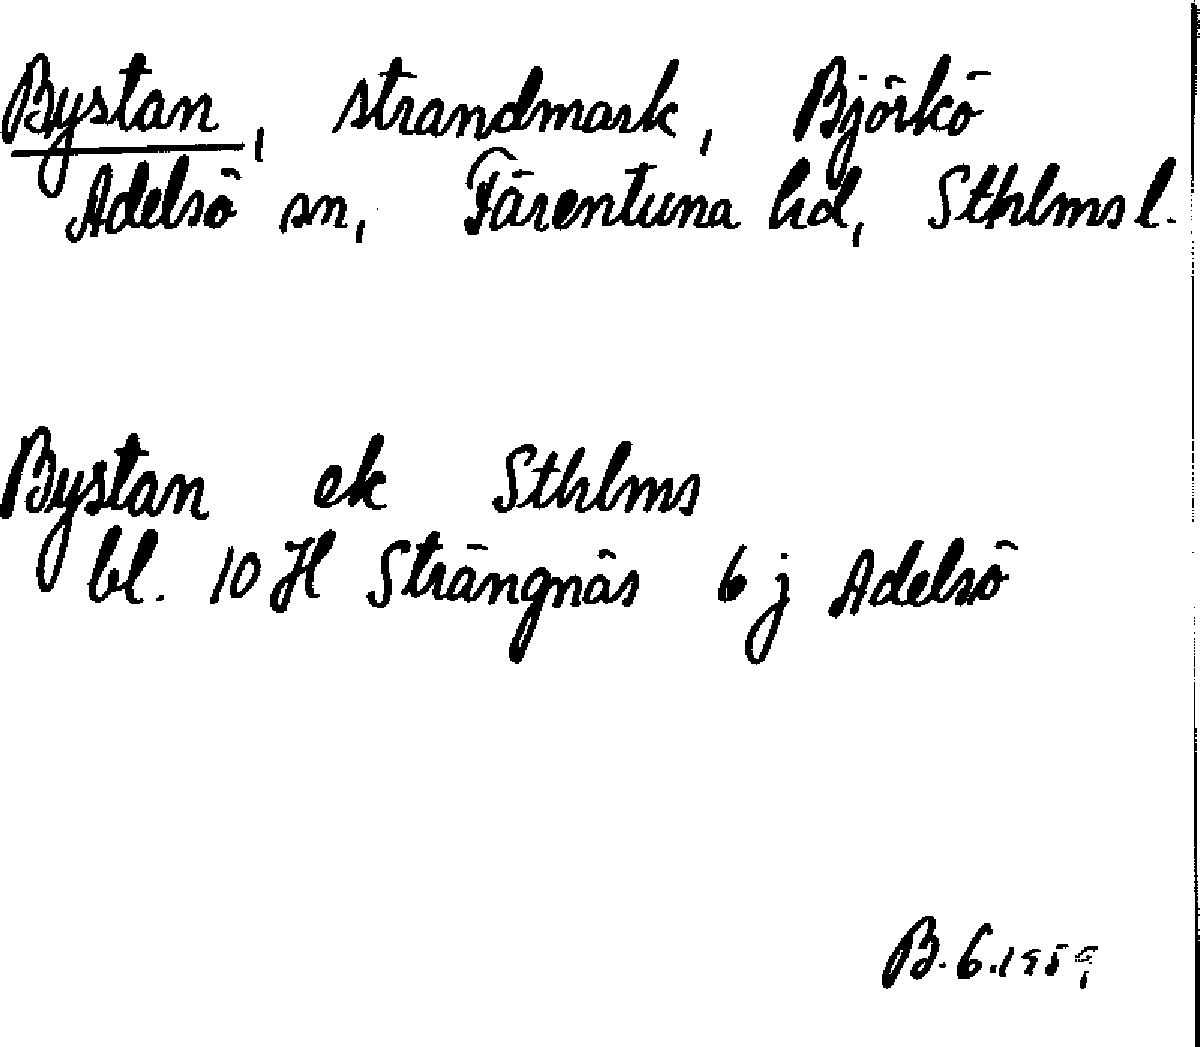 Bystan, strandmark, Björkö
Adelsö sn, Färentuna hd, Sthlms l.
Bystan ek Sthlms
bl. 10 H Strängnäs 6 j Adelsö
B. 6. 1959